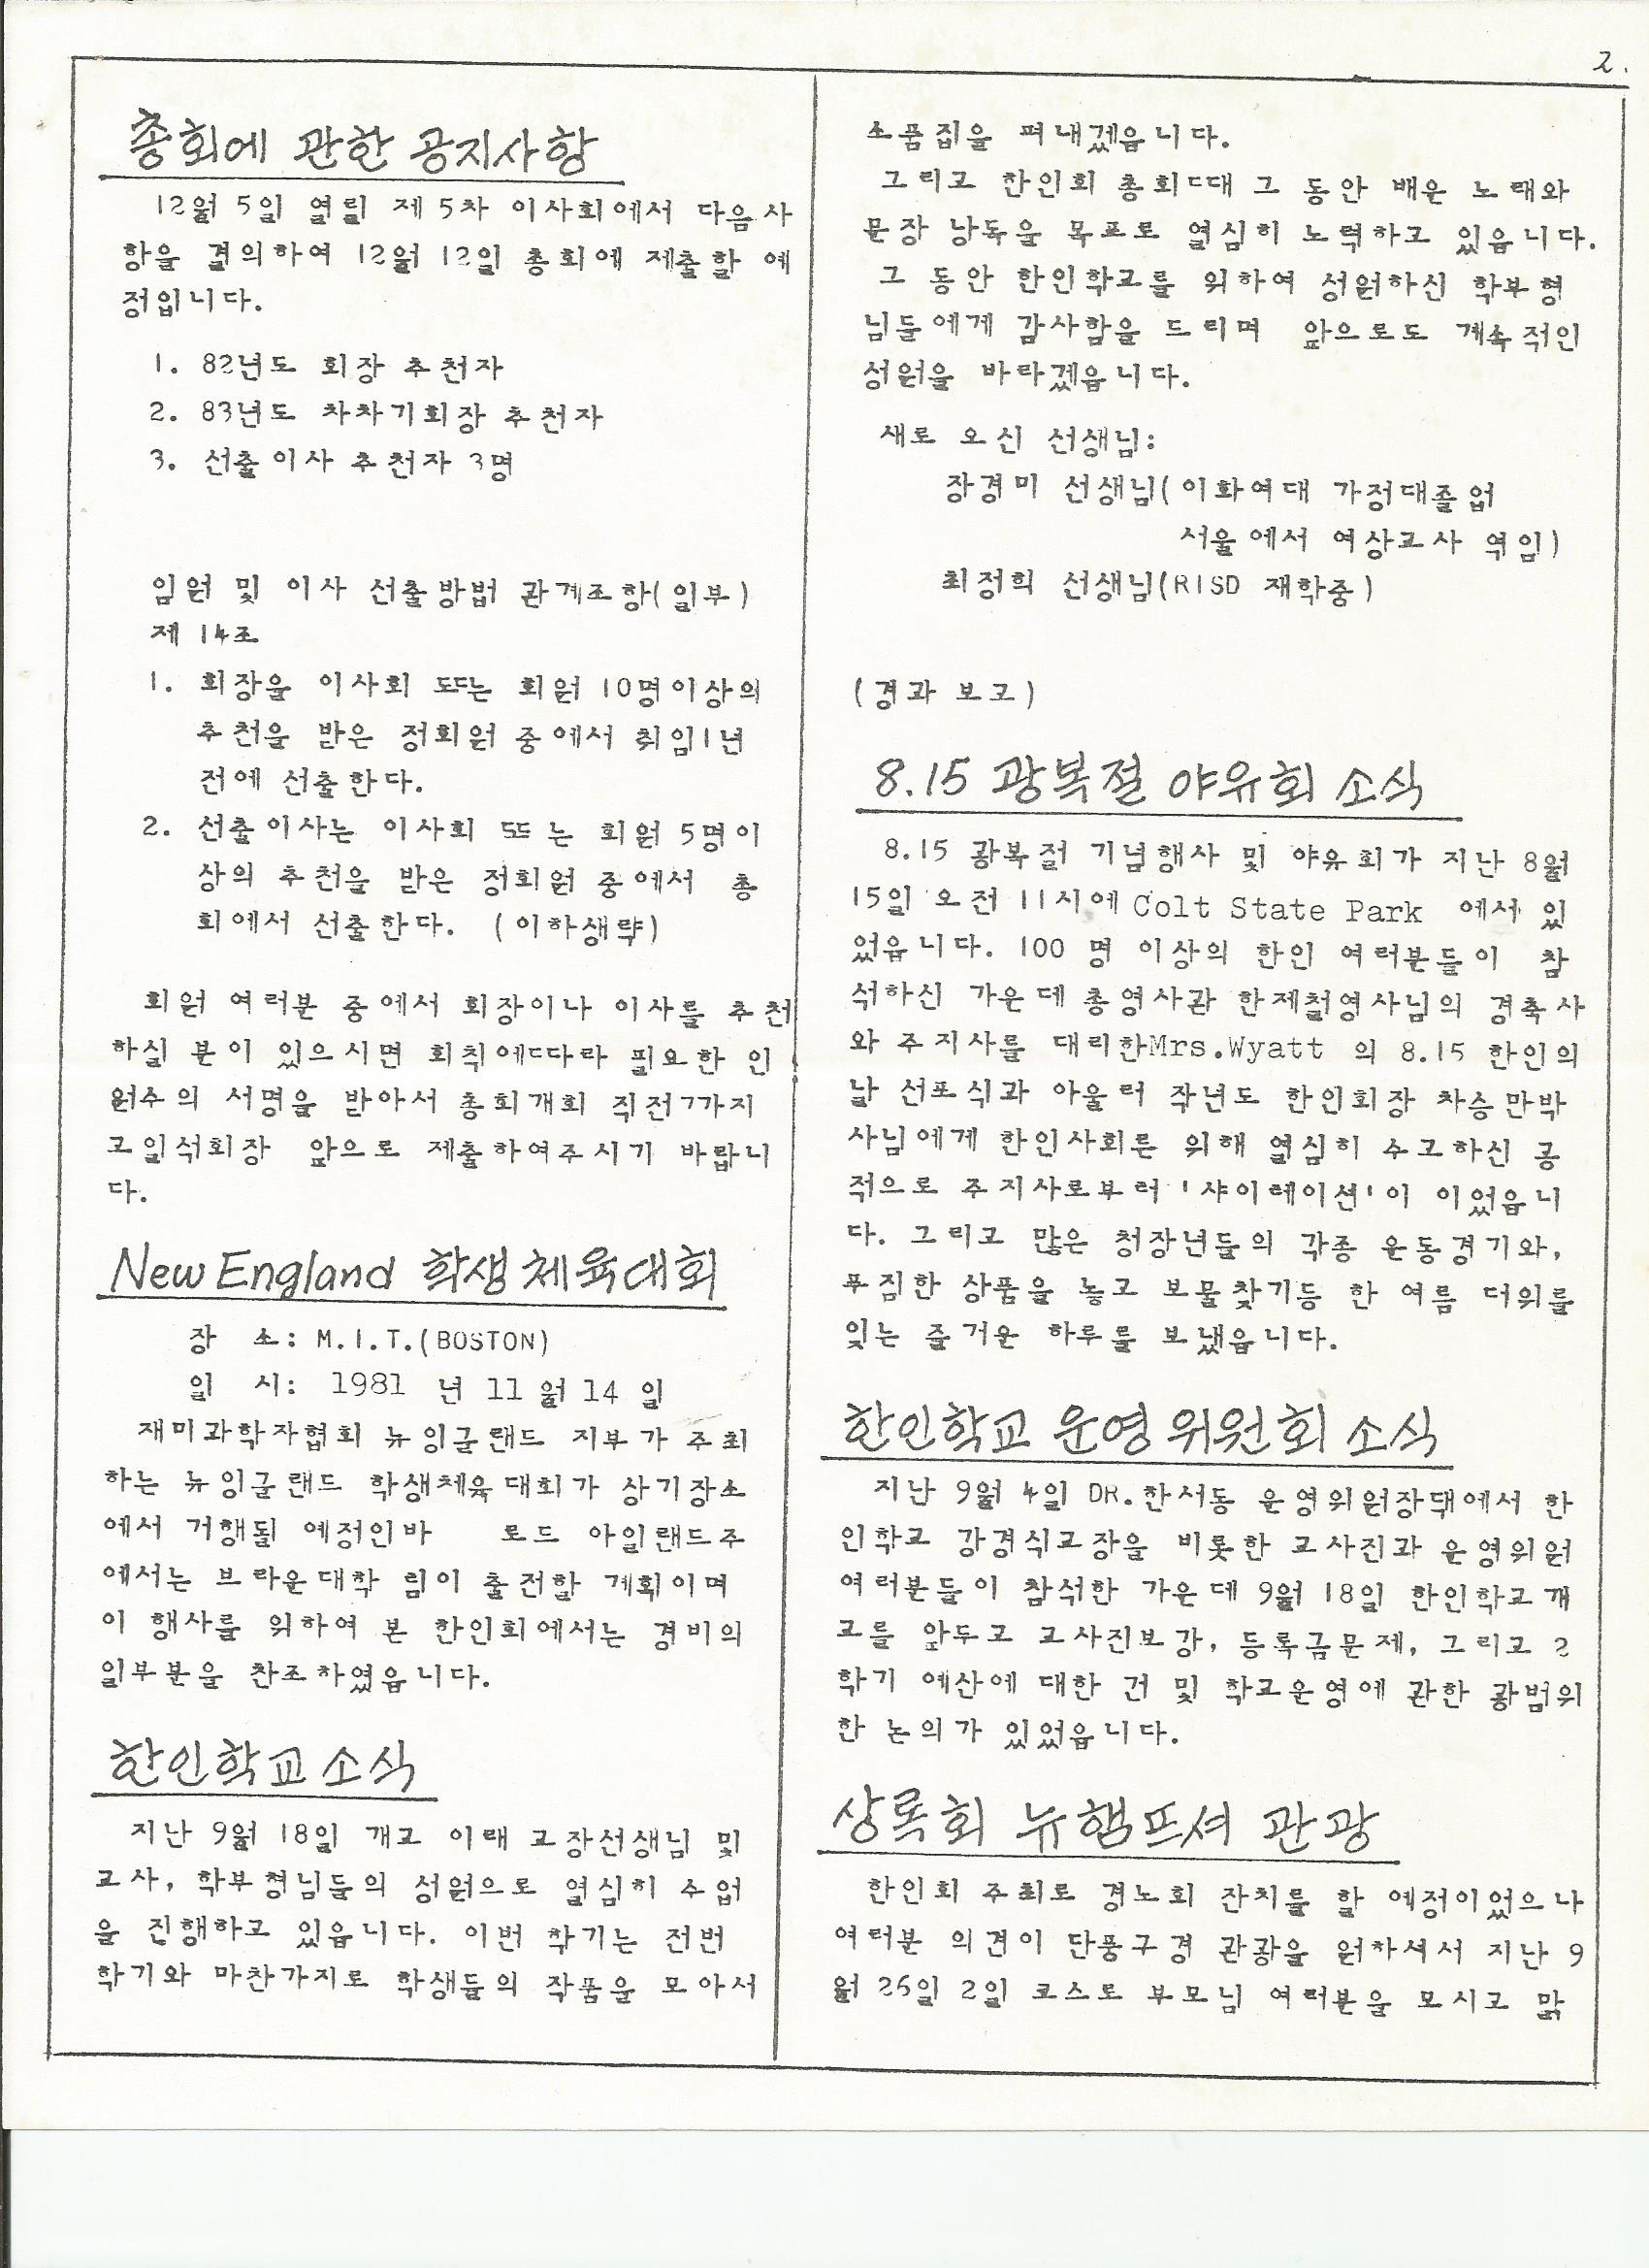 2.
총회에 관한 공지사항
12월 5일 열릴 제 5차 이사회에서 다음사
항을 결의하여 12월 12일 총회에 제출할 예
정입니다.
1. 82년도 회장 추천자
2. 83년도 차차기회장 추천자
3. 선출이사 추천자 3명
임원 및 이사 선출방법 관계조항(일부)
제 14조
1. 회장을 이사회 또는 회원 10명이상의
추천을 받은 정회원 중에서 취임1년
전에 선출한다.
2. 선출이사는 이사회 또는 회원 5명이
상의 추천을 받은 정회원 중에서 총
회에서 선출한다. (이하생략)
회원 여러분 중에서 회장이나 이사를 추천
하실 분이 있으시면 회칙에따라 필요한 인
원수의 서명을 받아서 총회개회 직전까지
고일석회장 앞으로 제출하여주시기 바랍니
다.
New England 학생체육대회
장 소: M.I.T.(BOSTON)
일 시: 1981 년 11 월 14 일
재미과학자협회 뉴잉글랜드 지부가 주최
하는 뉴잉글랜드 학생체육대회가 상기장소
에서 거행될 예정인바 로드 아일랜드주
에서는 브라운대학 팀이 출전할 계획이며
이 행사를 위하여 본 한인회에서는 경비의
일부분을 찬조하였읍니다.
한인학교 소식
지난 9월 18일 개교 이래 교장선생님 및
교사, 학부형님들의 성원으로 열심히 수업
을 진행하고 있읍니다. 이번 학기는 전번
학기와 마찬가지로 학생들의 작품을 모아서
소품집을 펴내겠읍니다.
그리고 한인회 총회때 그 동안 배운 노래와
문장 낭독을 목표로 열심히 노력하고 있읍니다.
그 동안 한인학교를 위하여 성원하신 학부형
님들에게 감사함을 드리며 앞으로도 계속적인
성원을 바라겠읍니다.
새로 오신 선생님:
장경미 선생님(이화여대 가정대졸업
서울에서 여상교사 역임)
최정희 선생님(RISD 재학중)
(경과 보고)
8.15 광복절 야유회 소식
8.15 광복절 기념행사 및 야유회가 지난 8월
15일 오전 11시에 Colt State Park 에서 있
었읍니다. 100 명 이상의 한인 여러분들이 참
석하신 가운데 총영사관 한제철영사님의 경축사
와 주지사를 대리한Mrs.Wyatt 의 8.15 한인의
날 선포식과 아울러 작년도 한인회장 차승만박
사님에게 한인사회를 위해 열심히 수고하신 공
적으로 주지사로부터 '샤이레이션'이 이었읍니
다. 그리고 많은 청장년들의 각종 운동경기와,
푸짐한 상품을 놓고 보물찾기등 한 여름 더위를
잊는 즐거운 하루를 보냈읍니다.
한인학교 운영위원회 소식
지난 9월 4일 DR.한서동 운영위원장댁에서 한
인학교 강경식교장을 비롯한 교사진과 운영위원
여러분들이 참석한 가운데 9월 18일 한인학교개
교를 앞두고 교사진보강, 등록금문제, 그리고 2
학기 예산에 대한 건 및 학교운영에 관한 광범위
한 논의가 있었읍니다.
상록회 뉴햄프셔 관광
한인회 주최로 경노회 잔치를 할 예정이었으나
여러분 의견이 단풍구경 관광을 원하셔서 지난 9
월 26일 2일 코스로 부모님 여러분을 모시고 맑